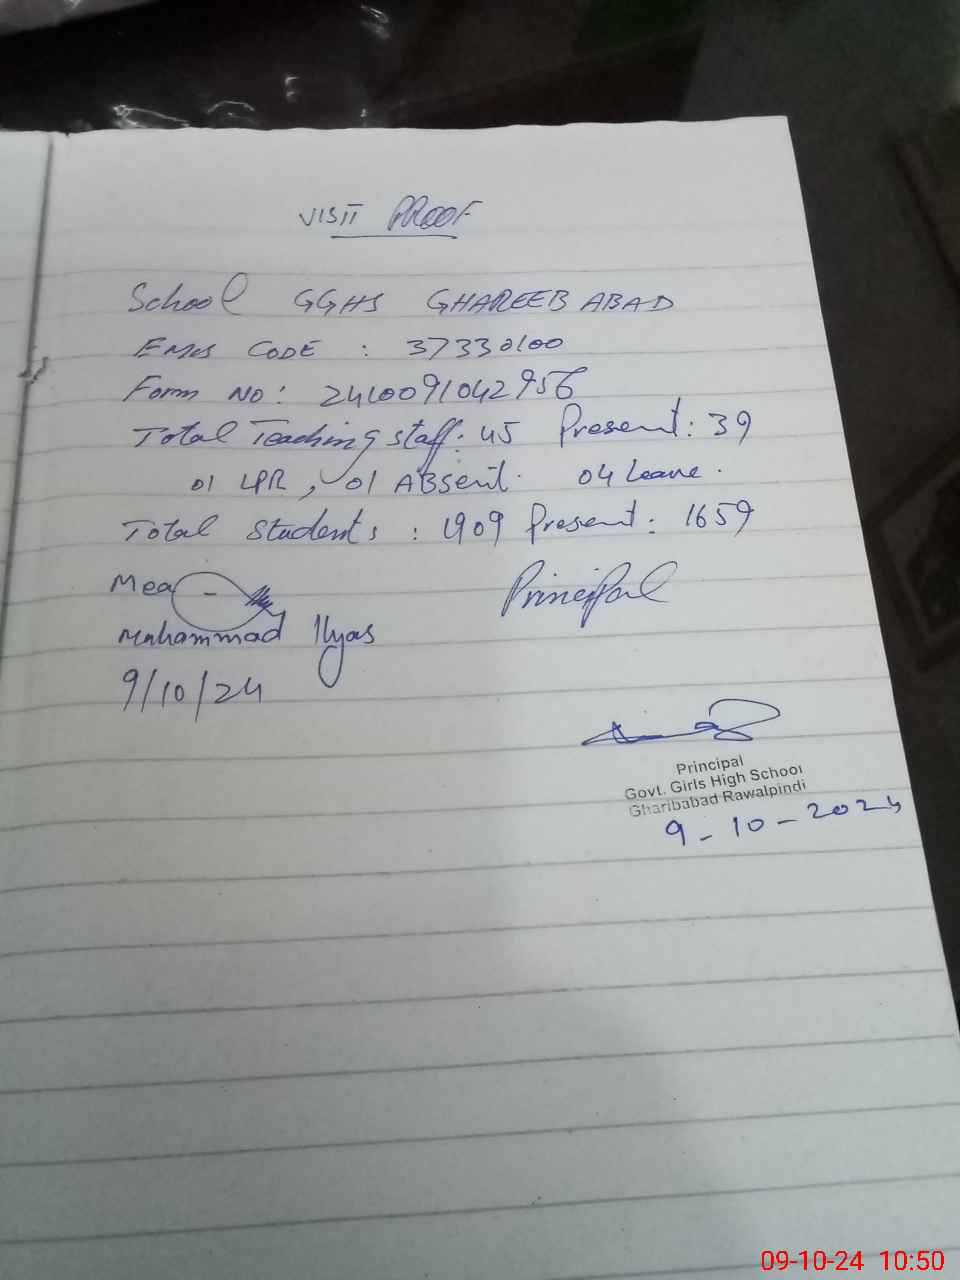 VISIT PROOF
School GGHS GHAREEBABAD
EMIS CODE : 37330100
Form NO: 2410091042956
Total Teaching staff: 45 Present: 39
01 LPR, 01 ABsent. 04 Leave.
Total Students : 1909 Present: 1659
Mea
Principal
Muhammad Ilyas
9/10/24
Principal
Govt. Girls High School
Gharibabad Rawalpindi
9-10-2024
09-10-24 10:50